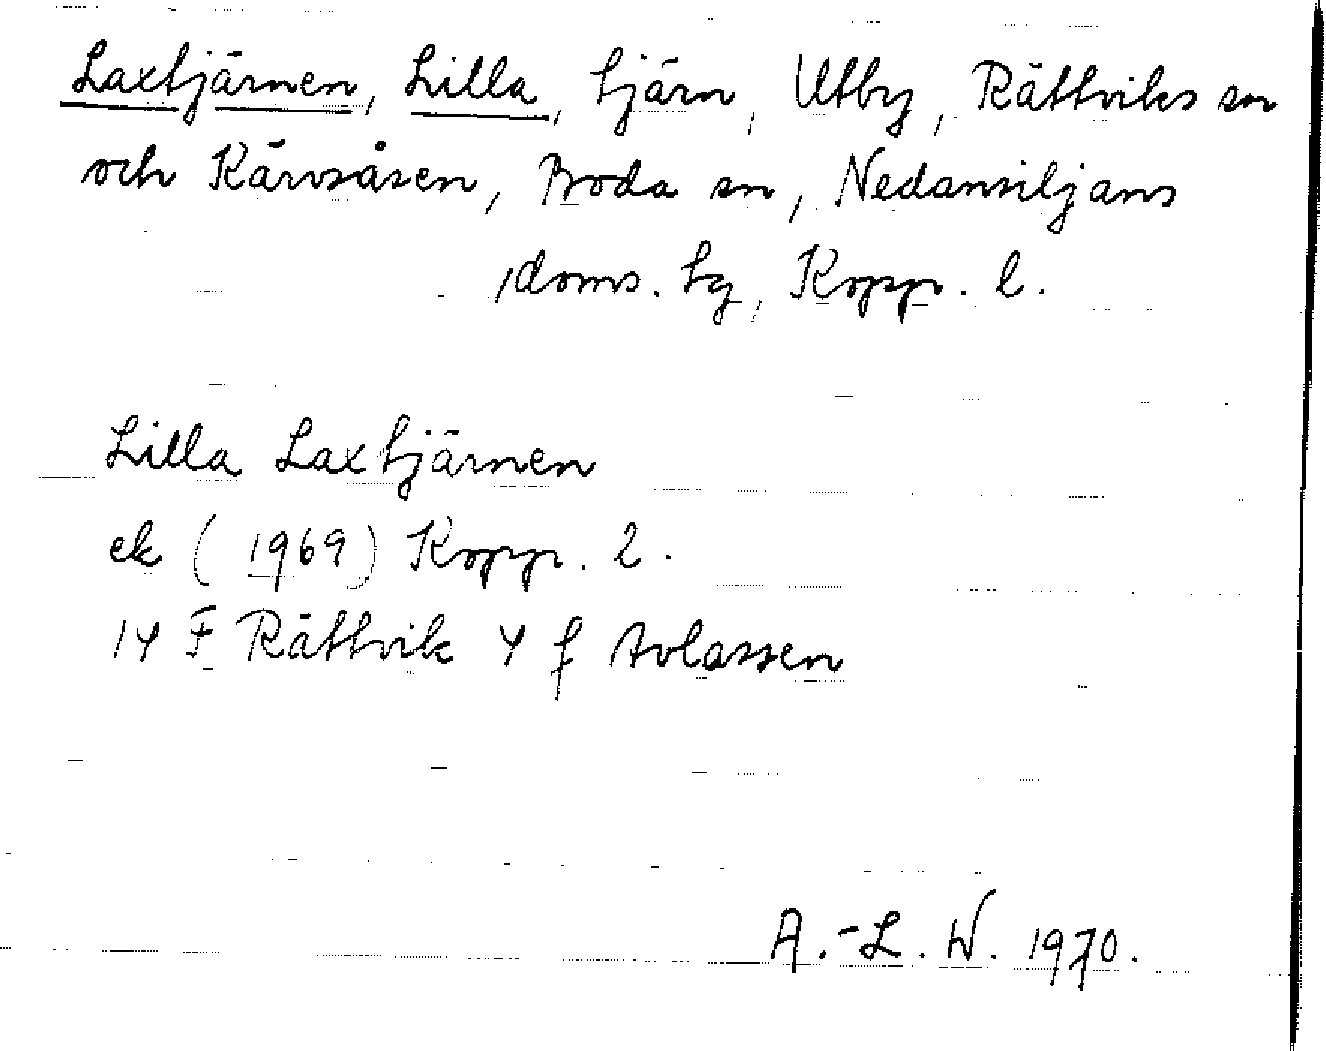 Laxtjärnen, Lilla, tjärn, Utby, Rättviks sn
och Kärvsåsen, Boda sn, Nedansiljans
doms. tg, Kopp. l.
Lilla Laxtjärnen
ek (1969) Kopp. l.
14 F Rättvik 4 f Avlassen
A.-L. W. 1970.